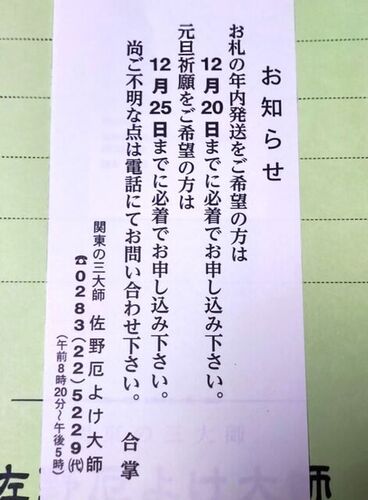 お知らせ
お札の年内発送をご希望の方は
12月20日までに必着でお申し込み下さい。
元旦祈願をご希望の方は
12月25日までに必着でお申し込み下さい。
尚ご不明な点は電話にてお問い合わせ下さい。
合掌
関東の三大師 佐野厄よけ大師
☎0283(22)5229(代)
(午前8時20分～午後5時)
の三大師
左
師